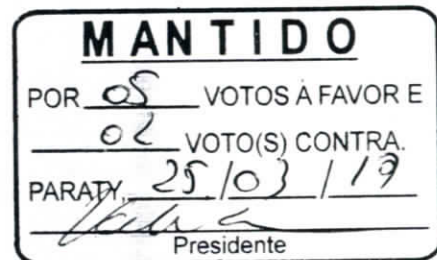 MANTIDO
POR 05 VOTOS À FAVOR E
02 VOTO(S) CONTRA.
PARATY, 25/03/19
Presidente